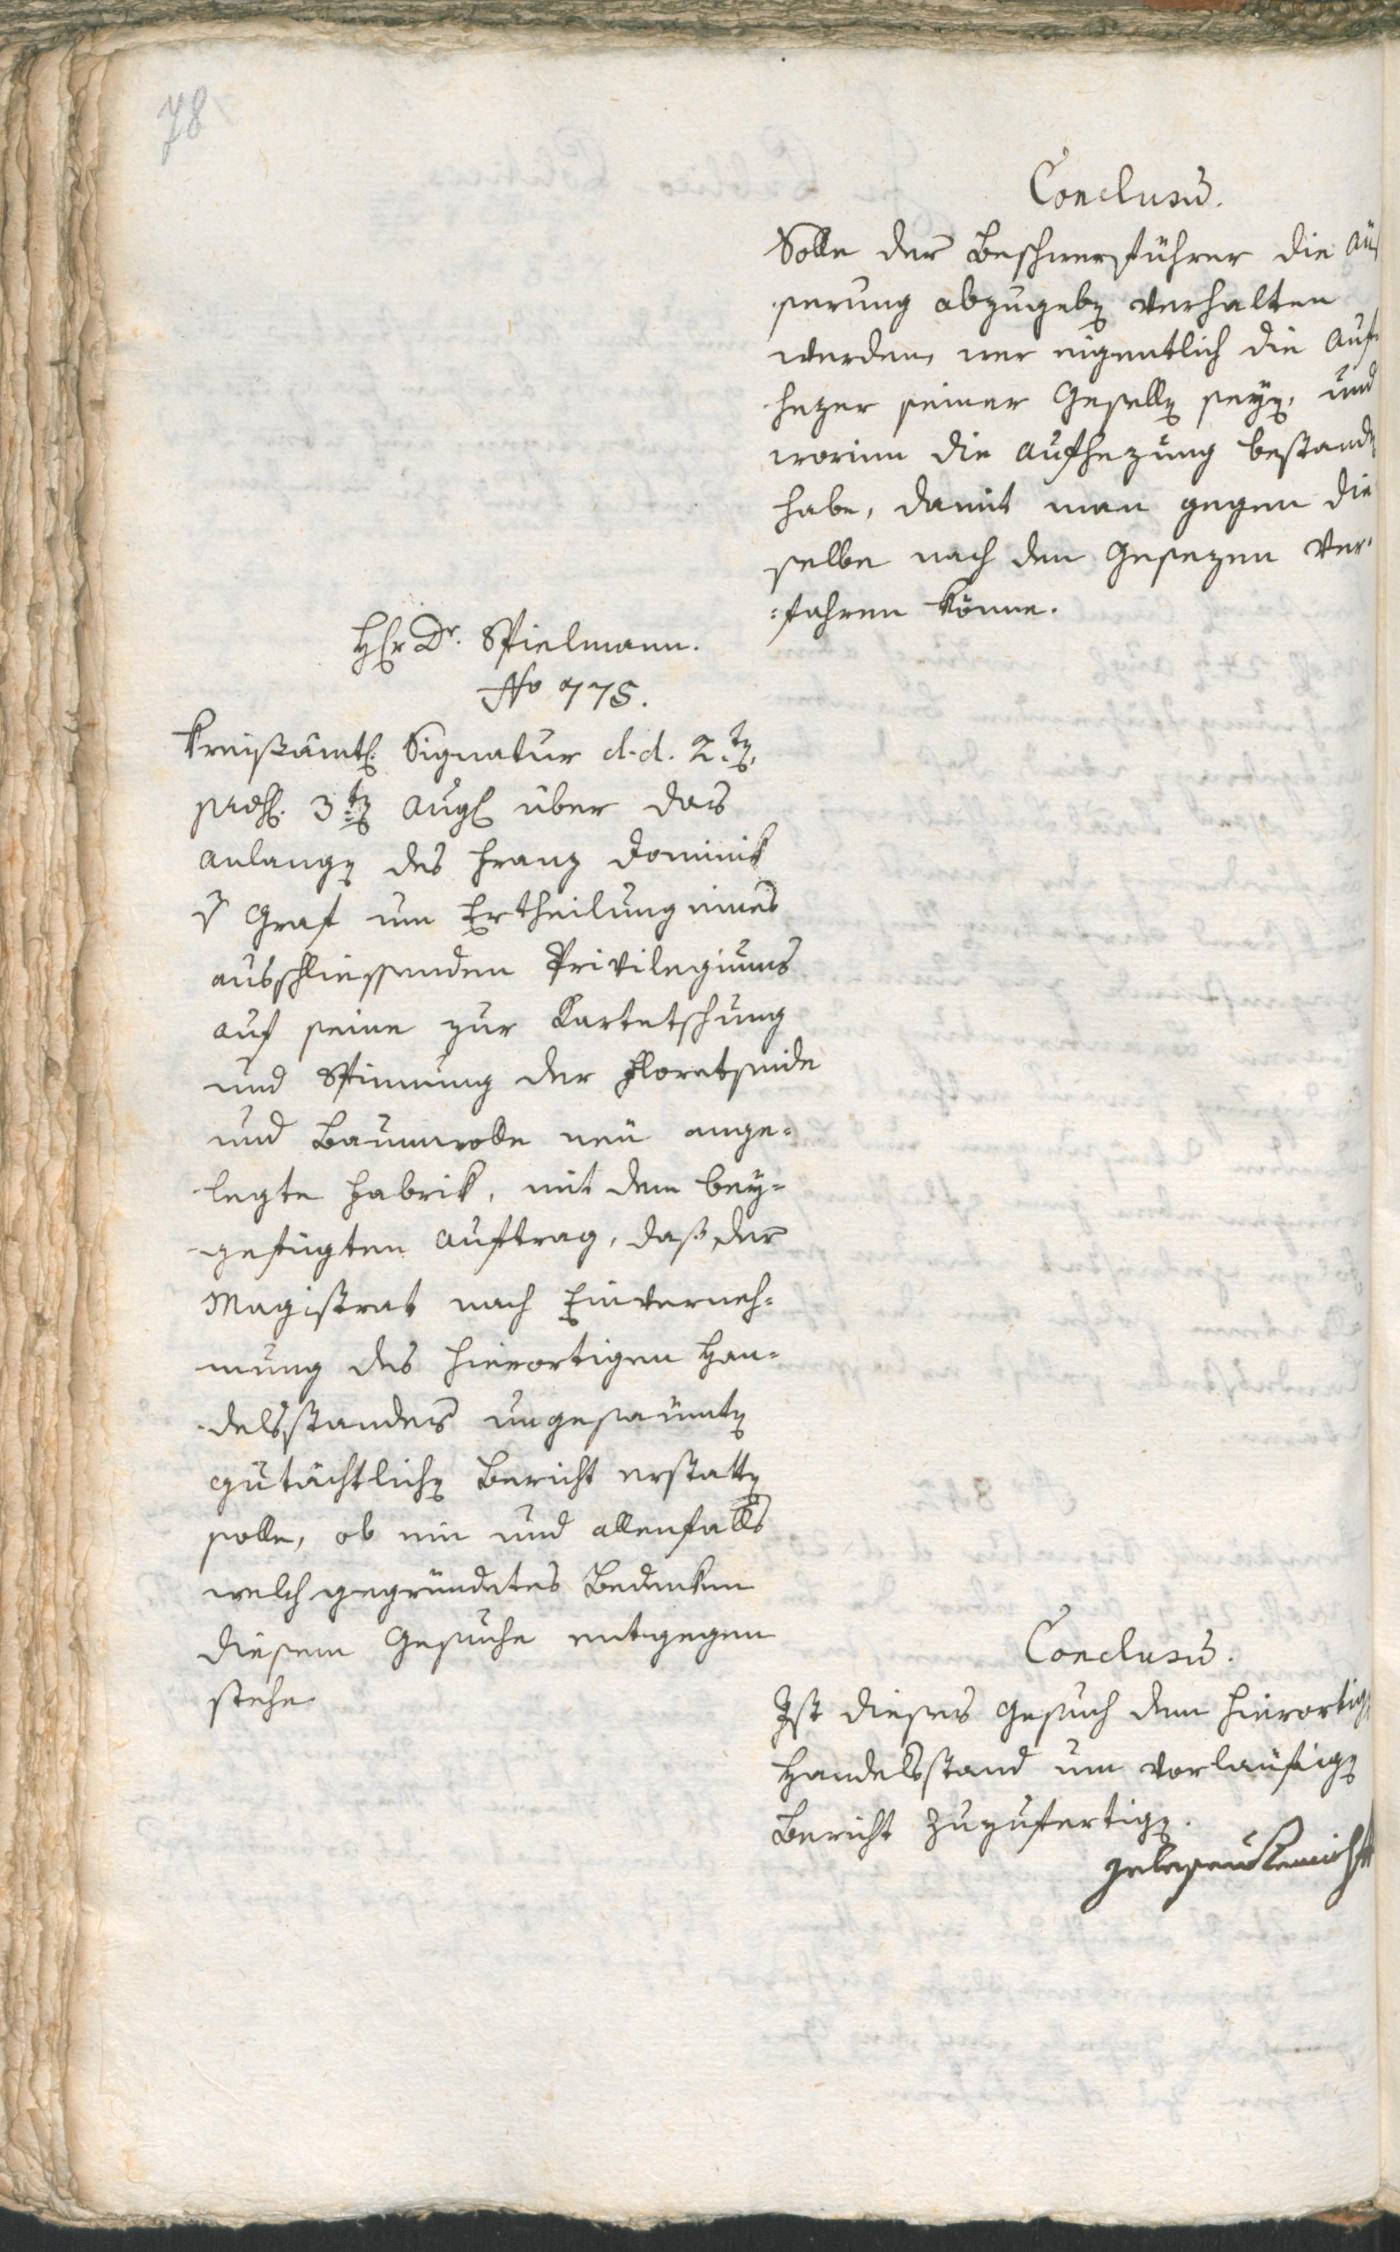 78
Conclusum.
Solle der Beschwerführer die Aüs
serung abzugeben verhalten
werden, wer eigentlich die Auf
hezer seiner Gesellen seyen, und
worinn die Aufhezung bestanden
habe, damit man gegen die
selbe nach den Gesezen ver¬
=fahren könne.
Hr Dr. Spielmann.
No 775.
Kreißämtl. Signatur d. d. 2.ten,
3ten Aug über das
Anlangen des Franz Dominik
Graf um Ertheilung eines
ausschliessenden Privilegiums
auf seine zur Kartetschung
und Spinnung der Floretseide
und Baumwolle neü ange=
legte Fabrik, mit dem bey=
gefügten Auftrag, daß der
Magistrat nach Einverneh=
mung des hierortigen Han=
delsstandes ungesaümten
gutächtlichen Bericht erstatten
solle, ob ein und allenfalls
welch gegründetes Bedenken
diesem Gesuche entgegen
stehe
Conclusum.
Ist dieses Gesuch dem hierortigen
Handelsstand um vorläufigen
Bericht zuzufertigen.